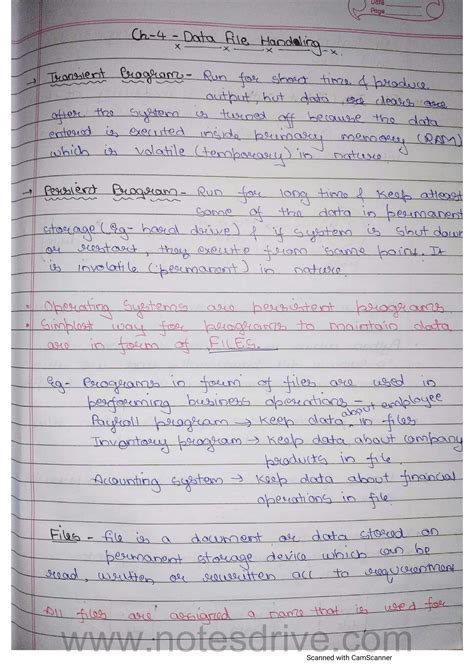 Date
Page
Ch-4 - Data File Handling
→ Transient Program - Run for short time & produce
output, but data are clears are
after the system is turned off because the data
entered is executed inside primary memory (RAM)
which is volatile (temporary) in nature.
→ Persient Program - Run for long time & keep atleast
some of the data in permanent
storage (Eg- hard drive) & if system is shut down
or restart, they execute from same point. It
is involatile (permanent) in nature.
• Operating Systems are persistent programs.
• Simplest way for programs to maintain data
are in form of FILES.
Eg- Programs in form of files are used in
performing business operations -
Payroll program → keep data about employee in files
Inventory program → keep data about company
products in file
Accounting system → keep data about financial
operations in file.
Files - File is a document or data stored on
permanent storage device which can be
read, written or rewritten acc to requirement
All files are assigned a name that is used for
www.notesdrive.com
Scanned with CamScanner